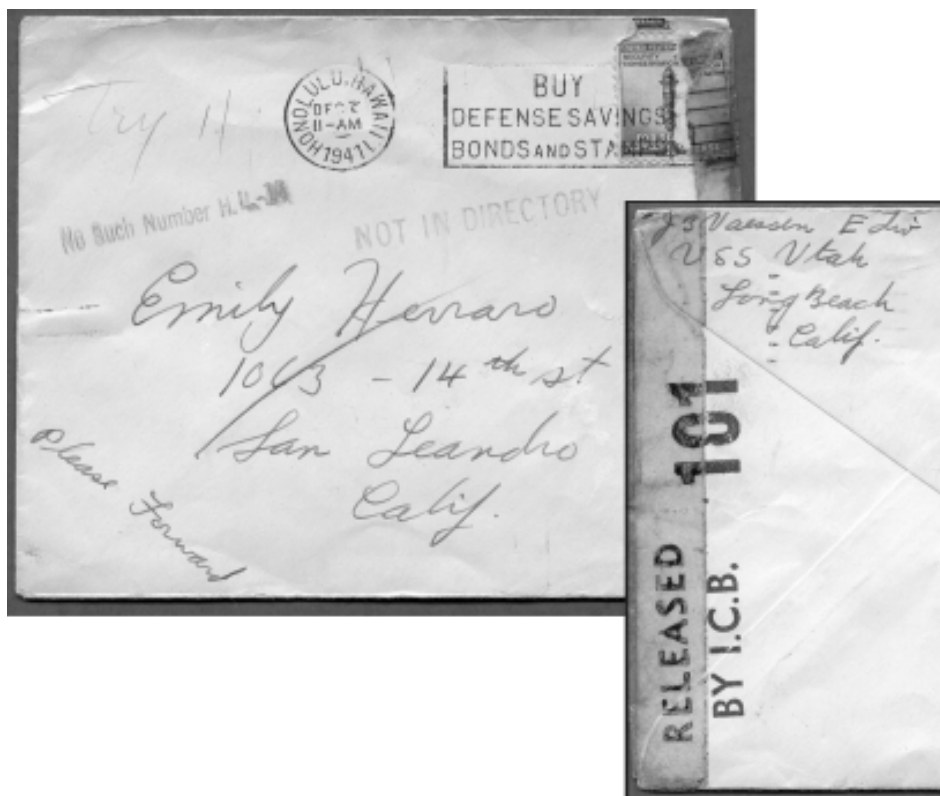 Try
HONOLULU, HAWAII
DEC
11-AM
1941
BUY
DEFENSE SAVINGS
BONDS AND STAMPS
No Such Number H.
NOT IN DIRECTORY
Emily Herraro
1063 - 14th st
San Leandro
Calif.
Please Forward
Vaessen E Div
USS Utah
Long Beach
Calif.
101
RELEASED
BY I.C.B.